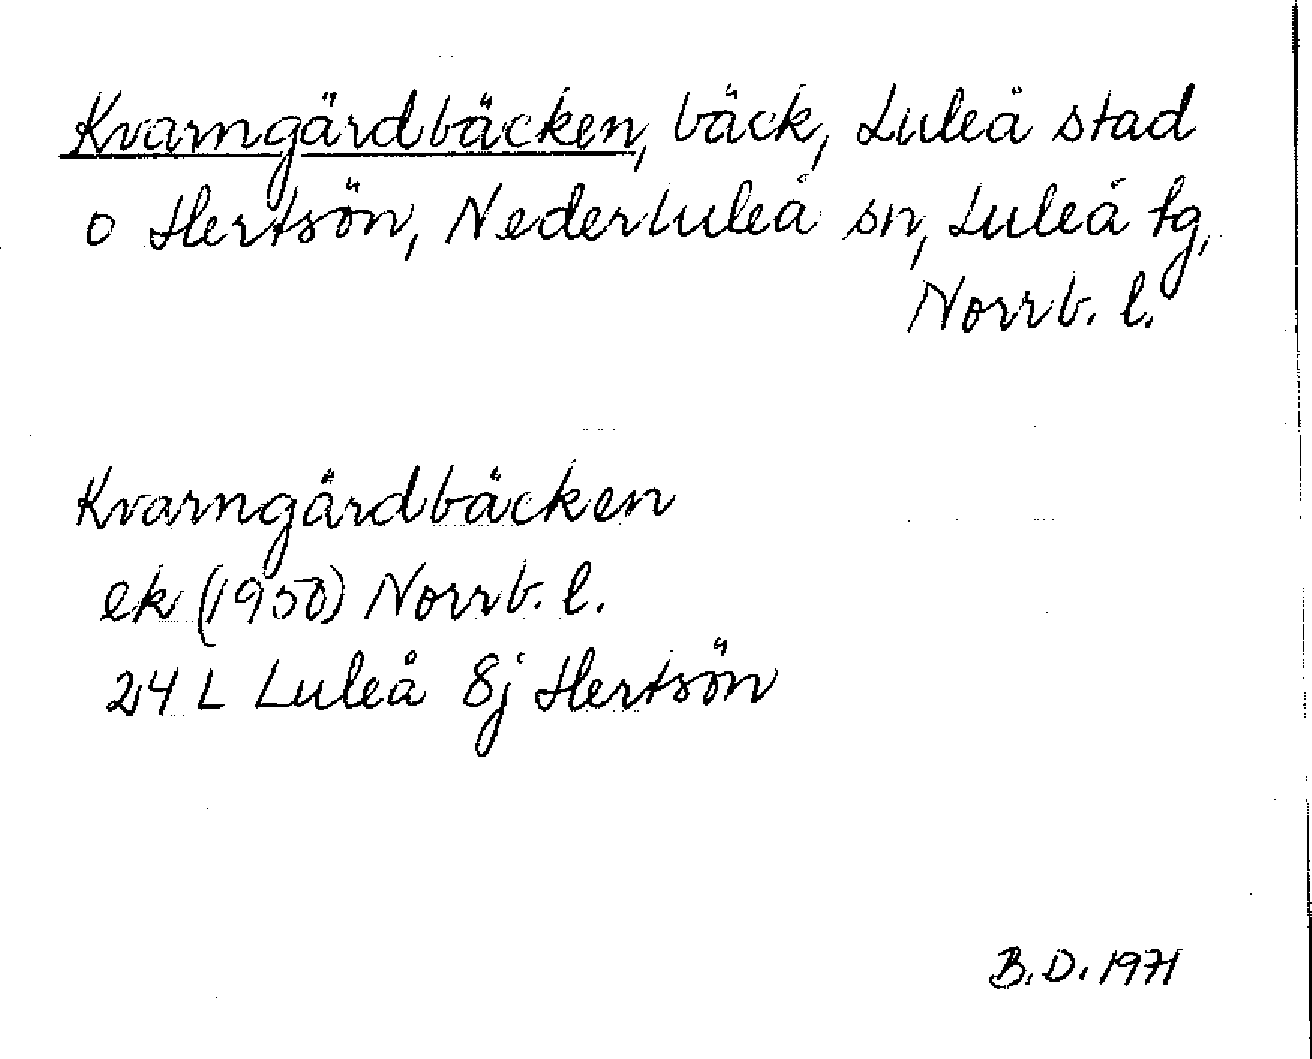 Kvarngärdbäcken, bäck, Luleå stad
o Hertsön, Nederluleå sn, Luleå tg,
Norrb. l.
Kvarngärdbäcken
ek (1950) Norrb. l.
24 L Luleå 8j Hertsön
B.D. 1971